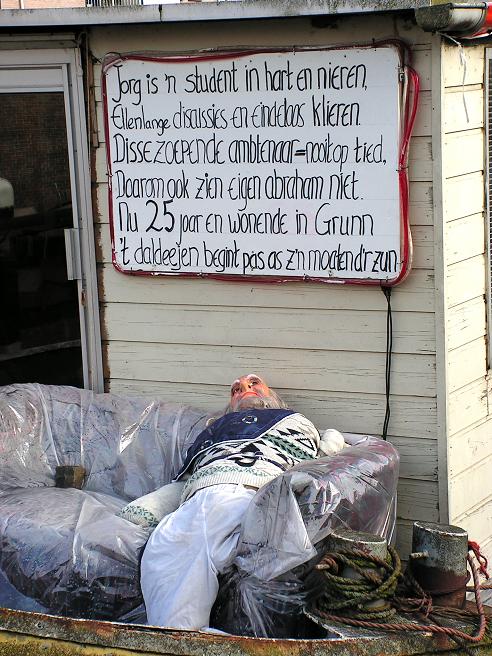 Jorg is 'n student in hart en nieren,
Ellenlange discussies en eindeloos klieren.
Disse zoepende ambtenaar=nooit op tied,
Daarom ook zien eigen abraham niet.
Nu 25 jaar en wonende in Grunn
't daldeejen begint pas as z'n moaten d'r zun